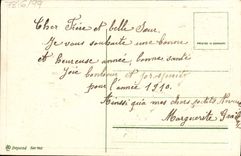 Cher Frère et belle Sœur
Je vous souhaite une bonne
et heureuse année, bonne santé
Joie bonheur et prospérité
pour l'année 1910.
Ainsi qu'à mes chers petits Neveux
Marguerite
Déposé